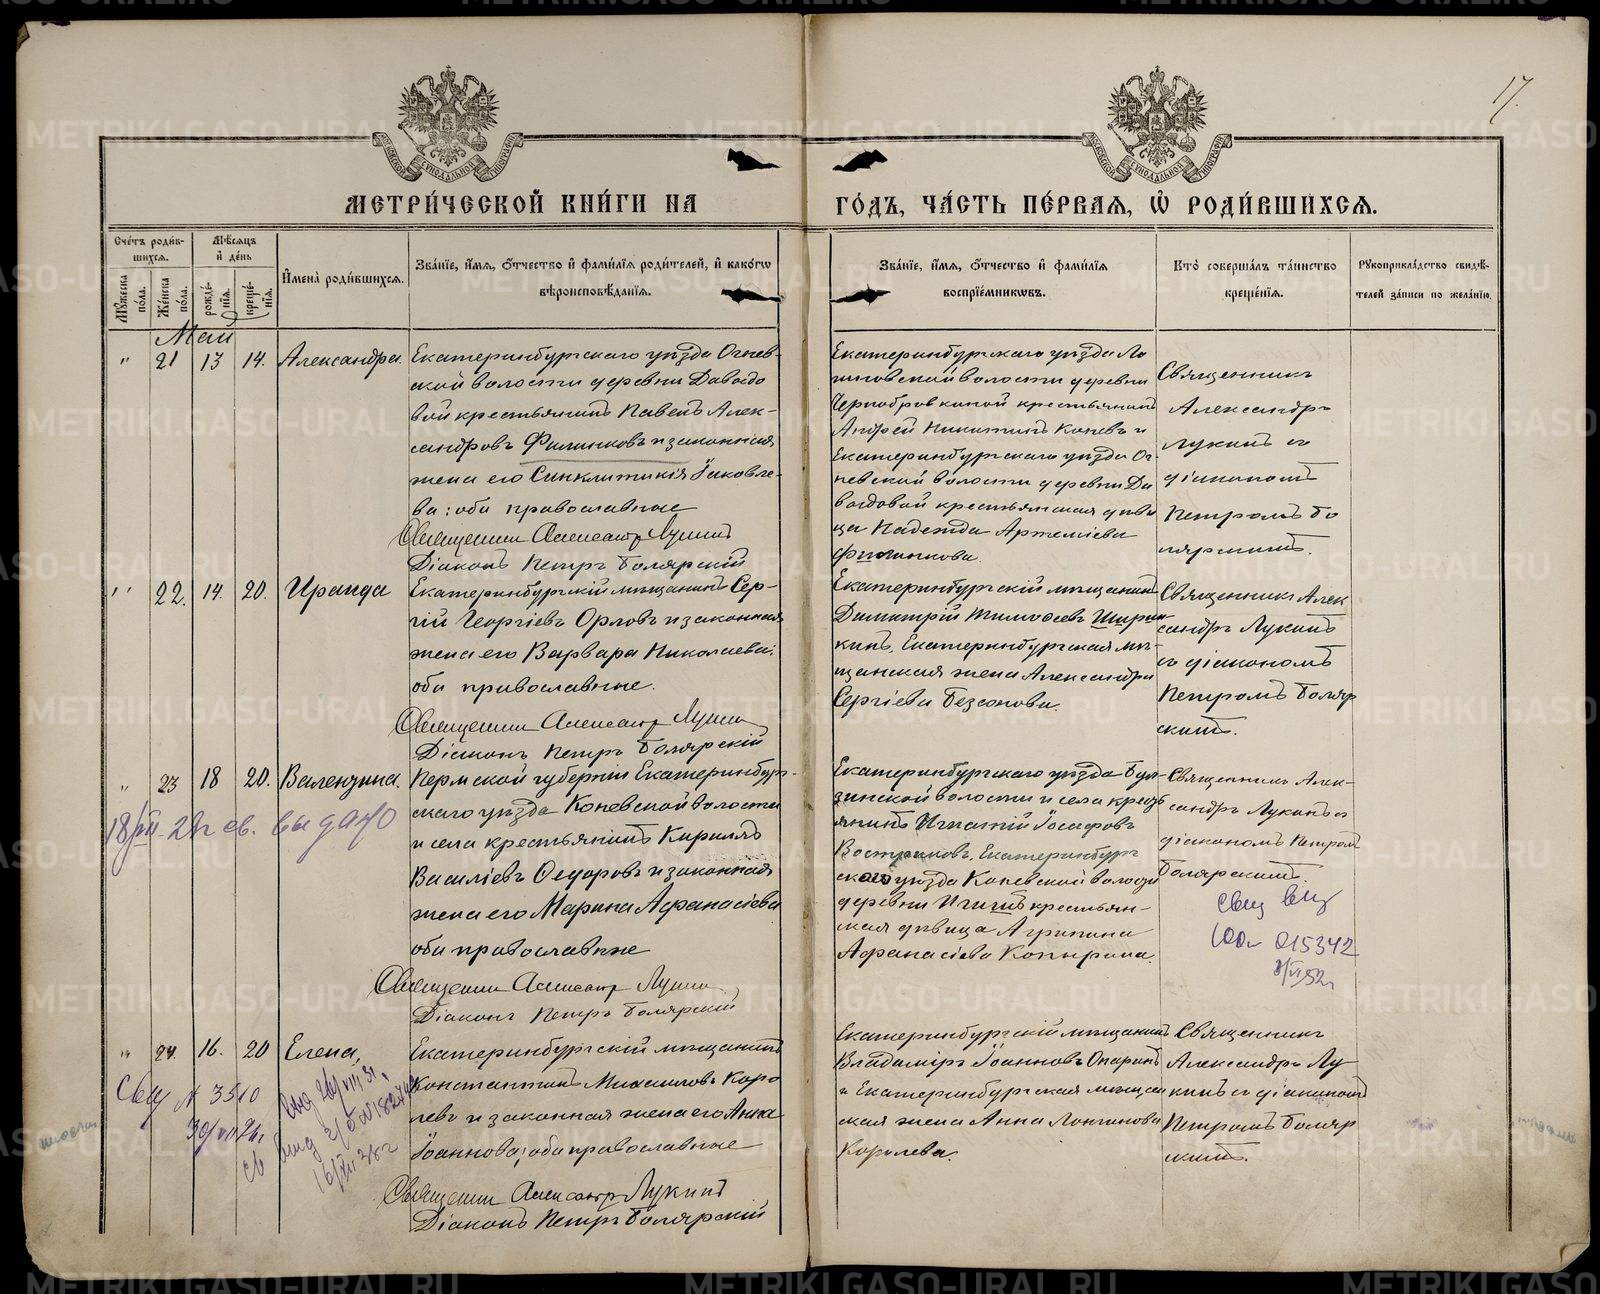 17.
МЕТРИ́ЧЕСКОЙ КНИ́ГИ НА ГО́ДЪ, ЧА́СТЬ ПЕ́РВАЯ, Ѡ҆ РОДИ́ВШИХСЯ.
Сче́тъ роди́в-
шихся.
Мѣ́сяцъ
и҆ де́нь
Мꙋ́жеска по́ла.
Же́нска по́ла.
рожде́-
нїя.
креще́-
нїя.
И҆мена̀ роди́вшихся.
Зва́нїе, и҆́мя, ѻ҆́тчество и҆ фами́лїя роди́телей, и҆ како́гѡ
вѣроисповѣ́данїя.
Зва́нїе, и҆́мя, ѻ҆́тчество и҆ фами́лїя
воспрїе́мникѡвъ.
Кто̀ соверша́лъ та́инство
креще́нїя.
Рꙋкоприкла́дство свидѣ́-
телей за́писи по жела́нїю.
Май
" 21 13 14. Александра.
Екатеринбургскаго уѣзда Огнев-
ской волости деревни Давыдо
вой крестьянинъ Павелъ Алек-
сандровъ Филинковъ и законная
жена его Синклитикія Іаковле-
ва: оба православные
Священникъ Александръ Лукинъ
Діаконъ Петръ Болярскій
Екатеринбургскаго уѣзда
волости деревни
крестьянинъ
Андрей Никитинъ Коневъ и
Екатеринбургскаго уѣзда Ог-
невской волости деревни Да
выдовой крестьянская дѣви
ца Надежда Артеміева
Филинкова.
Священникъ
Александръ
Лукинъ съ
діакономъ
Петромъ Бо
лярскимъ.
" 22. 14. 20. Ираида
Екатеринбургскій мѣщанинъ Сер-
гій Георгіевъ Орловъ и законная
жена его Варвара Николаева;
оба православные.
Священникъ Александръ Лукинъ
Діаконъ Петръ Болярскій
Екатеринбургскій мѣщанинъ
Димитрій Тимофеевъ Шарин
кинъ, Екатеринбургская мѣ-
щанская жена Александра
Сергіева Безсонова.
Священникъ Алек
сандръ Лукинъ
съ діакономъ
Петромъ Боляр
скимъ.
" 23 18 20. Валентина.
18/VII-28г св. выдано
Пермской губерніи Екатеринбург-
скаго уѣзда Коневской волости
и села крестьянинъ Кириллъ
Василіевъ Ѳедоровъ и законная
жена его Марина Афанасіева
оба православные
Священникъ Александръ Лукинъ
Діаконъ Петръ Болярскій
Екатеринбургскаго уѣзда
волости и села кресть
янинъ Игнатій Іосафовъ
Востряковъ, Екатеринбург
скаго уѣзда Коневской волости
деревни крестьян-
ская дѣвица Агрипина
Афанасіева Копырина.
Священникъ Алек-
сандръ Лукинъ съ
діакономъ Петромъ
Болярскимъ.
015342
" 24. 16. 20 Елена,
Свид N 3510
Екатеринбургскій мѣщанинъ
Константинъ Михаиловъ Коро
левъ и законная жена его Анна
Іоаннова; оба православные
Священникъ Александръ Лукинъ
Діаконъ Петръ Болярскій
Екатеринбургскій мѣщанинъ
Владиміръ Іоанновъ Опаринъ
и Екатеринбургская мѣщан
ская жена Анна Лонгинова
Королева.
Священникъ
Александръ Лу-
кинъ съ діакономъ
Петромъ Боляр
скимъ.
METRIKI.GASO-URAL.RU